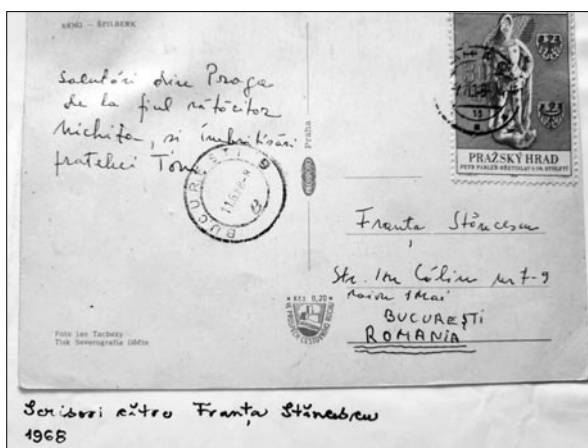 BRNO - ŠPILBERK
Salutări din Praga
de la fiul rătăcitor
Nichita, si îmbrățișări
fratelui Tom
BUCUREȘTI 9
Praha
PRAŽSKÝ HRAD
PETR PARLÉŘ-SV. VÁCLAV
Franța Stănescu
Str. Ion Călin nr 7-9
raion 1 Mai
BUCUREȘTI
ROMANIA
Kčs 0,20
Foto Jan Tachezy
Tisk Severografia Děčín
Scrisori către Franța Stănescu
1968